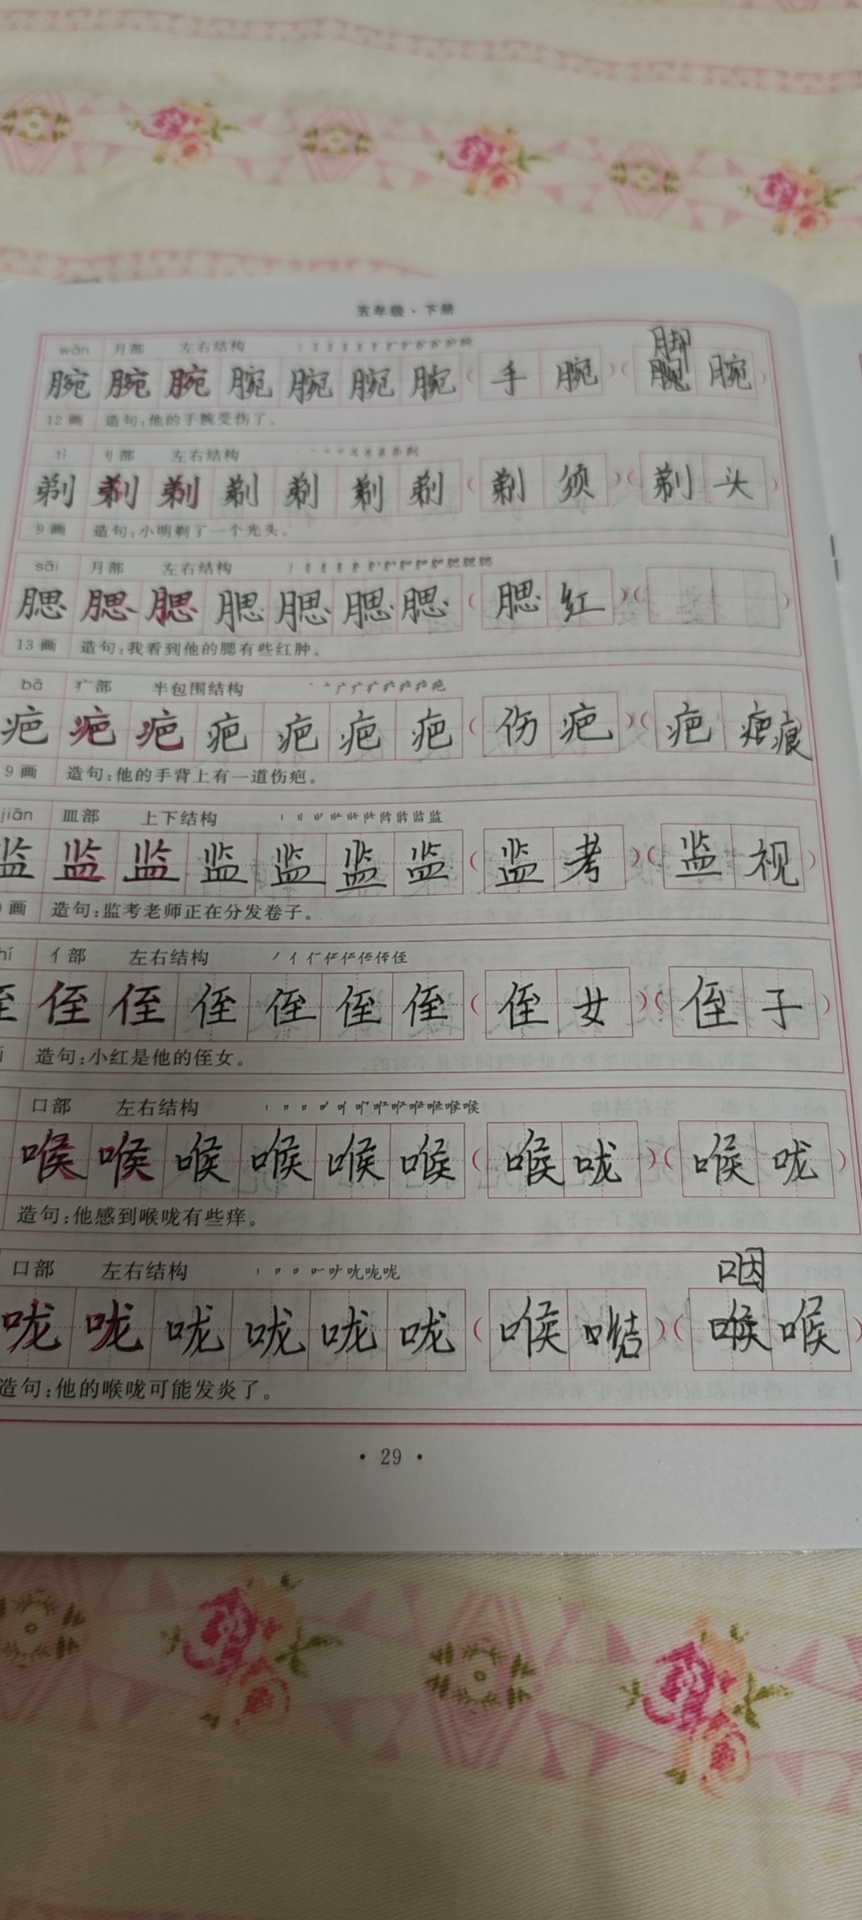 五年级·下册
wàn 月部 左右结构
腕 腕 腕 腕 腕 腕 腕 (手腕)(脚腕)
12画 造句:他的手腕受伤了。
tì 刂部 左右结构
剃 剃 剃 剃 剃 剃 剃 (剃须)(剃头)
9画 造句:小明剃了一个光头。
sāi 月部 左右结构
腮 腮 腮 腮 腮 腮 腮 (腮红)( )
13画 造句:我看到他的腮有些红肿。
bā 疒部 半包围结构
疤 疤 疤 疤 疤 疤 疤 (伤疤)(疤痕)
9画 造句:他的手背上有一道伤疤。
jiān 皿部 上下结构
监 监 监 监 监 监 监 (监考)(监视)
画 造句:监考老师正在分发卷子。
hí 亻部 左右结构
侄 侄 侄 侄 侄 侄 侄 (侄女)(侄子)
造句:小红是他的侄女。
口部 左右结构
喉 喉 喉 喉 喉 喉 (喉咙)(喉咙)
造句:他感到喉咙有些痒。
口部 左右结构
咙 咙 咙 咙 咙 咙 (喉结)(咽喉)
造句:他的喉咙可能发炎了。
·29·